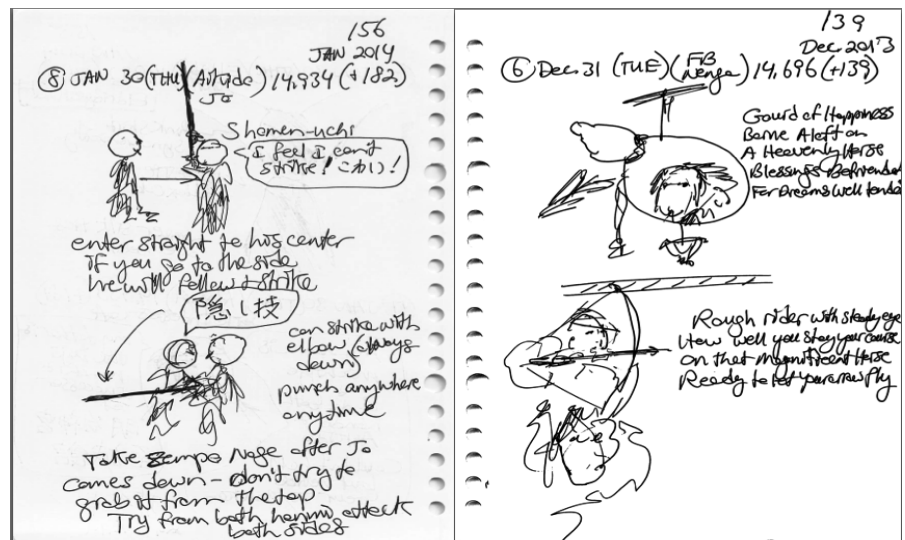 156
JAN 2014
⑧ JAN 30 (THU) (Aikido Jo) 14,934 (+182)
Shomen-uchi
I feel I can't
strike! こわい!
enter straight to his center
if you go to the side
he will follow & strike
隠し技
can strike with
elbow (always
down)
punch anywhere
anytime
Take Zempo Nage after Jo
comes down - don't try to
grab it from the top
Try from both hanmi, attack
both sides
139
Dec 2013
⑥ Dec. 31 (TUE) (FB Nenga) 14,696 (+139)
Gourd of Happiness
Borne Aloft on
A Heavenly Horse
Blessings Befriended
For Dreams Well tended
Rough rider with steady eye
How well you stay your course
on that magnificent Horse
Ready to let your arrow fly